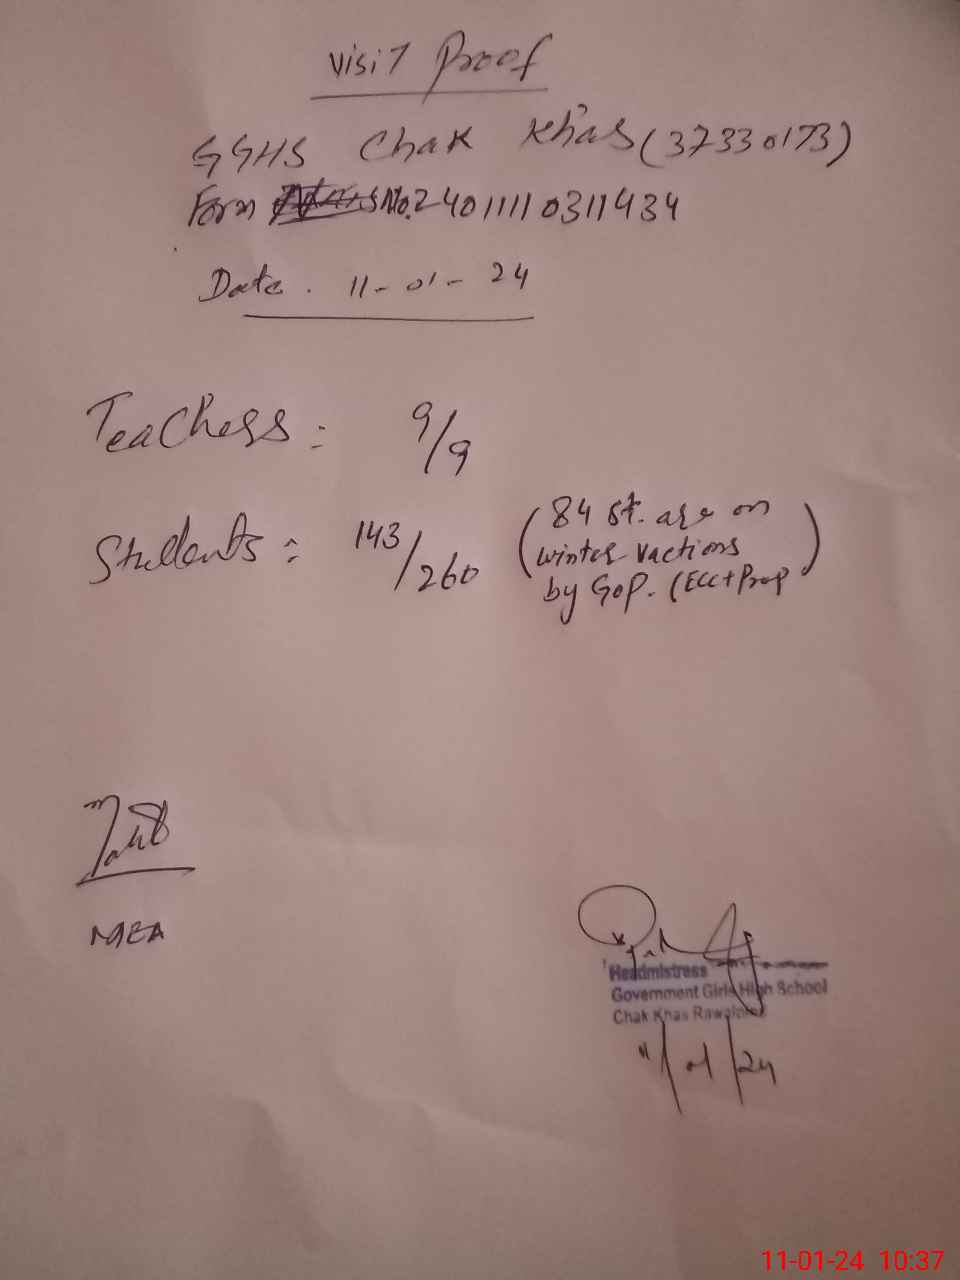 Visit Proof
GGHS Chak Khas (37330173)
Form S No. 24011110311434
Date. 11-01-24
Teachers: 9/9
Students: 143/260
(84 st. are on
winter vactions
by GoP. (ECC+Prep)
MEA
Headmistress
Government Girls High School
Chak Khas Rawalpindi
11/01/24
11-01-24 10:37